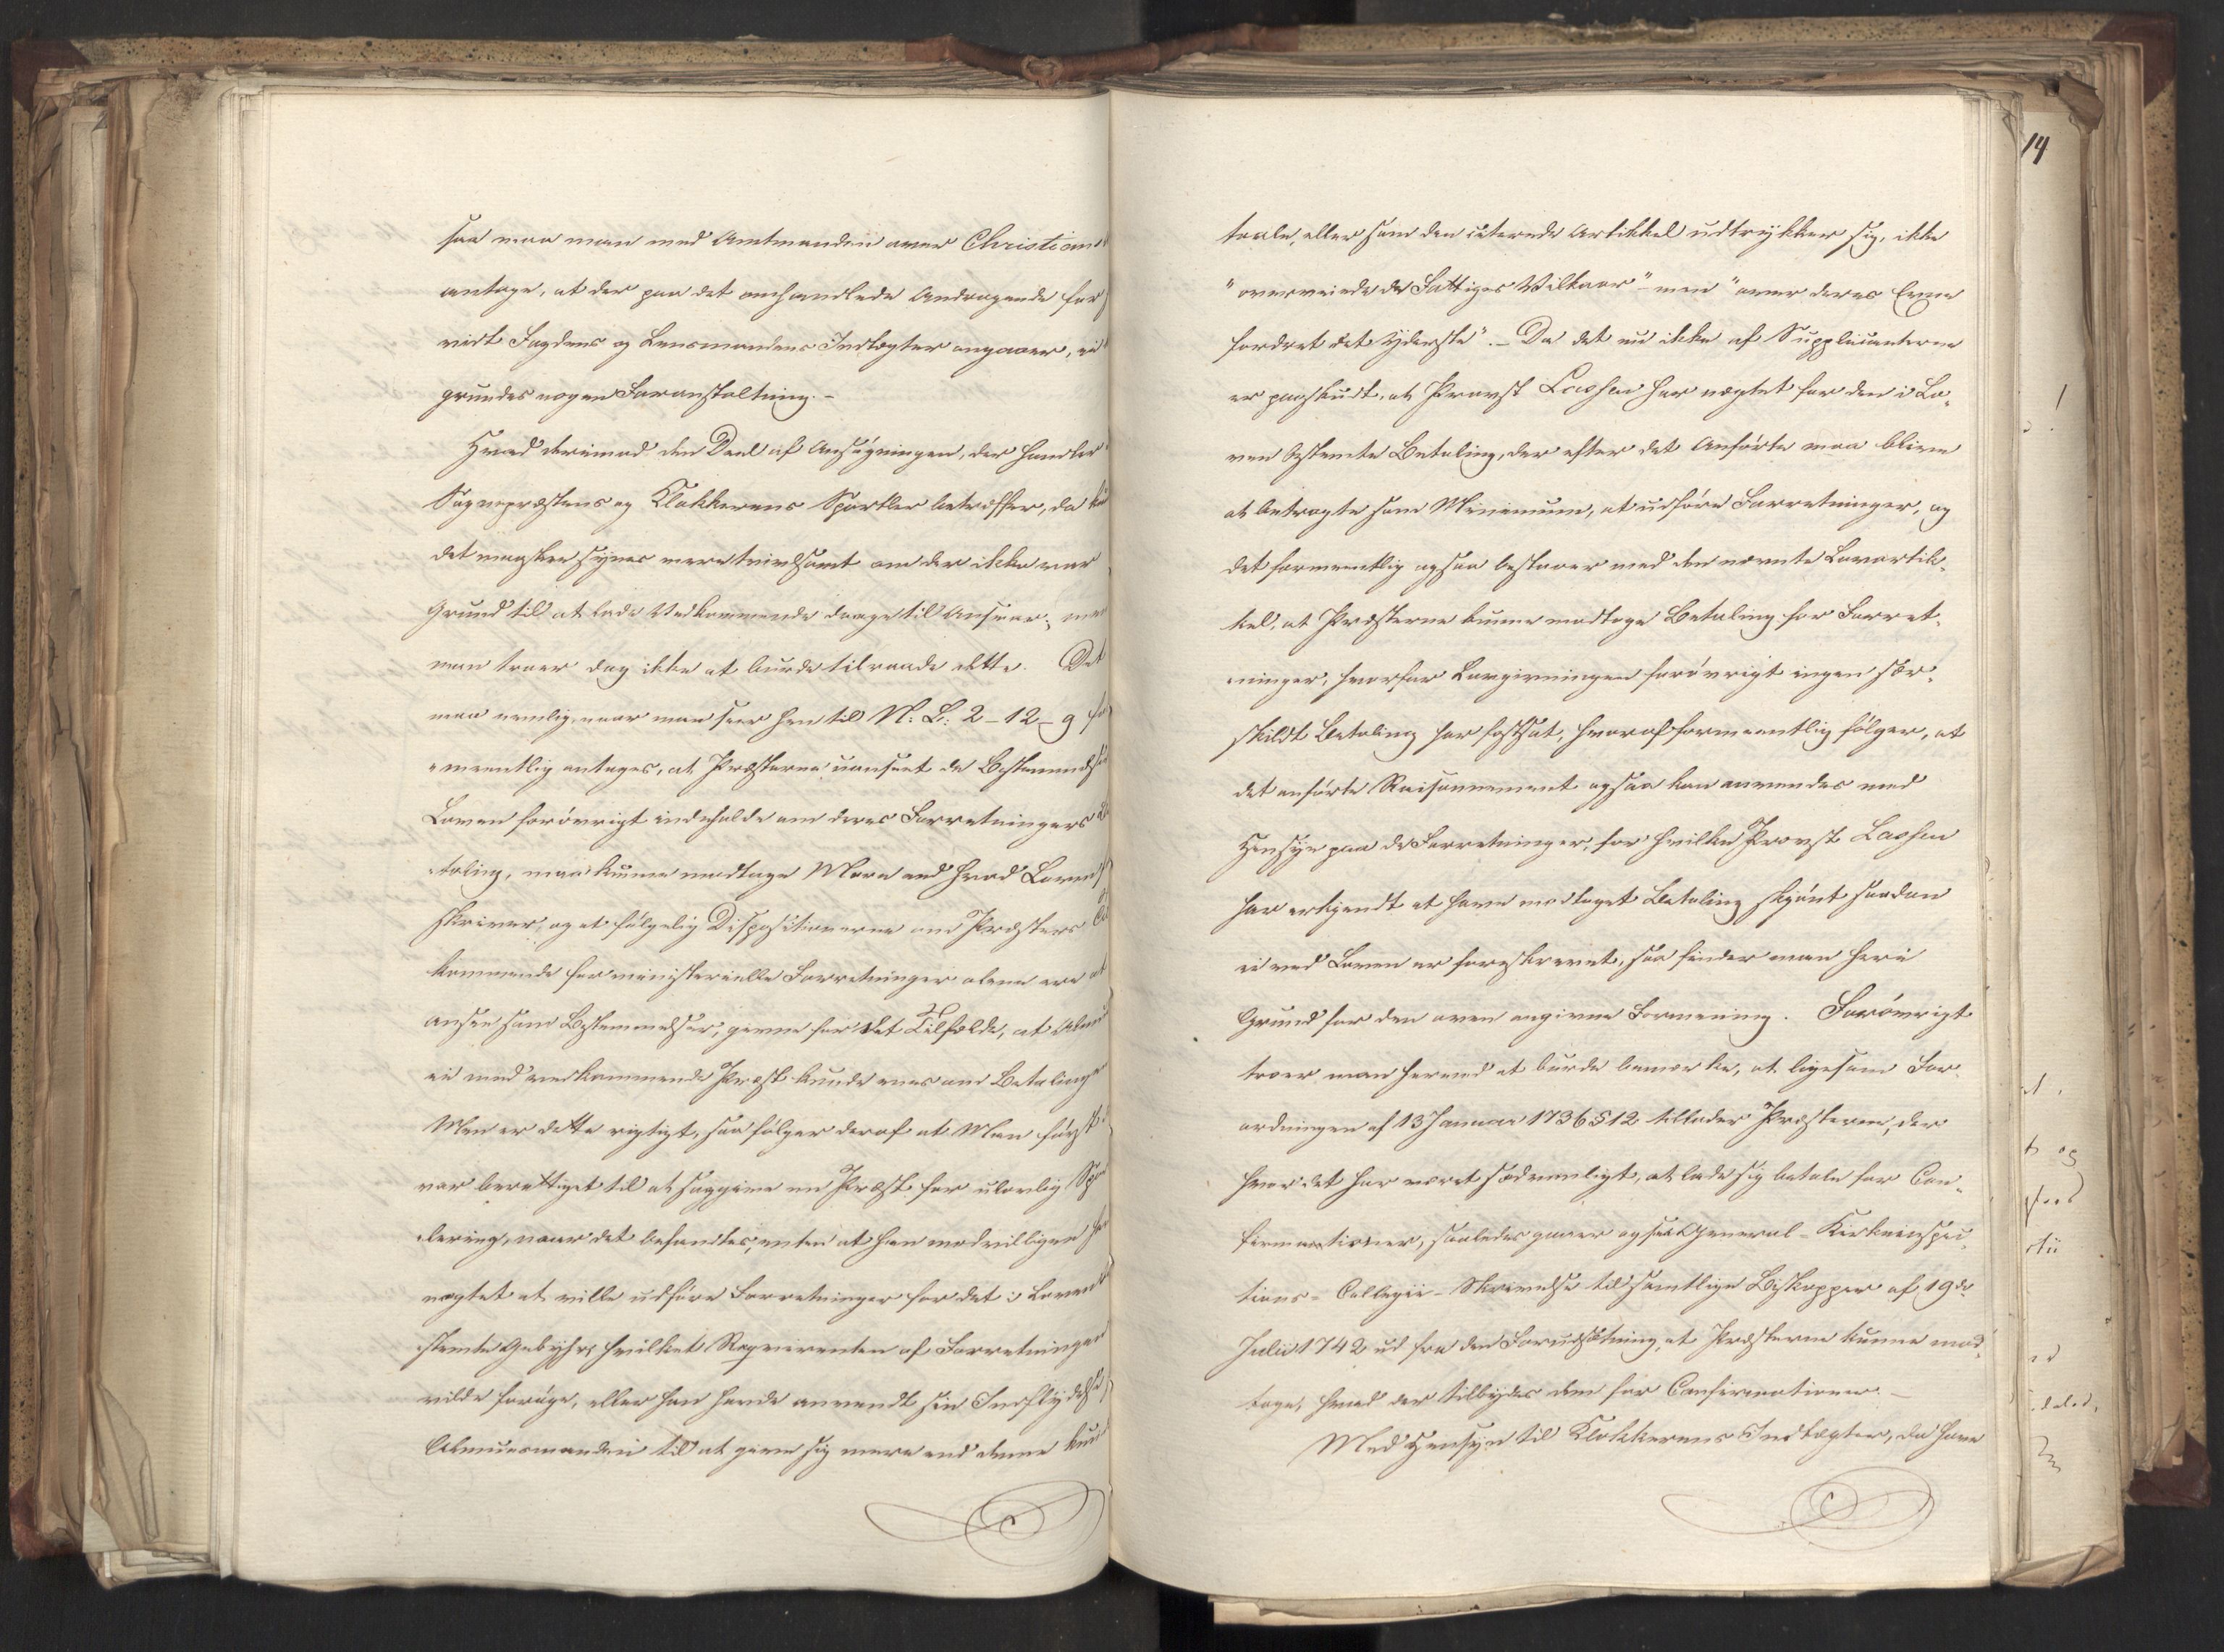 saa maa man med Amtmanden over Christians
antage, at der paa det omhandlede Andragende for
vidt Fogdens og Lensmandens Indtægter angaaer, ei
grundes nogen Foranstaltning.-
Hvad derimod den Deel af Ansøgningen, der handler
Sognepræstens og Klokkerens Sportler betræffer, da
det maaskee synes mere tvivlsomt om der ikke var
Grund til at lade Vedkommende drage til Ansvar; men
man troer dog ikke at burde tilraade dette. Det
maa nemlig, naar man seer hen til N: L: 2-12-9 for
meentlig antages, at Præsterne uanseet de Bestemmelser
Loven forøvrigt indeholde om deres Forretningers Be
taling, maa kunne modtage Mere end hvad Loven
skriver, og at følgelig Dispositionerne om Præsters
kommende for ministerielle Forretninger alene ere at
ansee som Bestemmelser, givne for det Tilfælde, at Almuen
ei med vedkommende Præst kunde enes om Betalingen
Men er dette rigtigt, saa følger deraf at Man først
var berettiget til at saggive en Præst for ulovlig Sport
lering, naar det befandtes, enten at han modvilligen har
nægtet at ville udføre Forretninger for det i Loven be
stemte Gebyhr, hvilket Reqvirenten af Forretningen
vilde forøge, eller han havde anvendt sin Indflydelse
Almuesmanden til at give sig mere end denne kunde
14
taale, eller som den citerede Artikkel udtrykker sig, ikke
"overveiede de Fattiges Vilkaar" - men "over deres Evne
fordret det Yderste". - Da det nu ikke af Supplicanterne
er paaskudt, at Provst Lassen har nægtet for den i Lo-
ven bestemte Betaling, der efter det Anførte maa blive
at betragte som Minimum, at udføre Forretninger, og
det formeentlig ogsaa bestaaer med den nævnte Lovartik-
kel, at Præsterne kunne modtage Betaling for Forret-
ninger, hvorfor Lovgivningen forøvrigt ingen sær-
skildt Betaling har fastsat, hvoraf formeentlig følger, at
det anførte Raisonnement ogsaa kan anvendes med
Hensyn paa de Forretninger, for hvilke Provst Lassen
har erkjendt at have modtaget Betaling skjønt saadan
ei ved Loven er foreskrevet, saa finder man heri
Grund for den oven angivne Formening. Forøvrigt
troer man herved at burde bemærke, at ligesom For-
ordningen af 13 Januar 1736 § 12 tillader Præsterne, der
hvor det har været sædvanligt, at lade sig betale for Con-
firmationer, saaledes gaaer ogsaa General-Kirkeinspec-
tions-Collegii-Skrivelse til samtlige Biskopper af 19de
Julii 1742 ud fra den Forudsætning, at Præsterne kunne mod-
tage, hvad der tilbydes dem for Confirmationer. -
Med Hensyn til Klokkerens Indtægter, da have